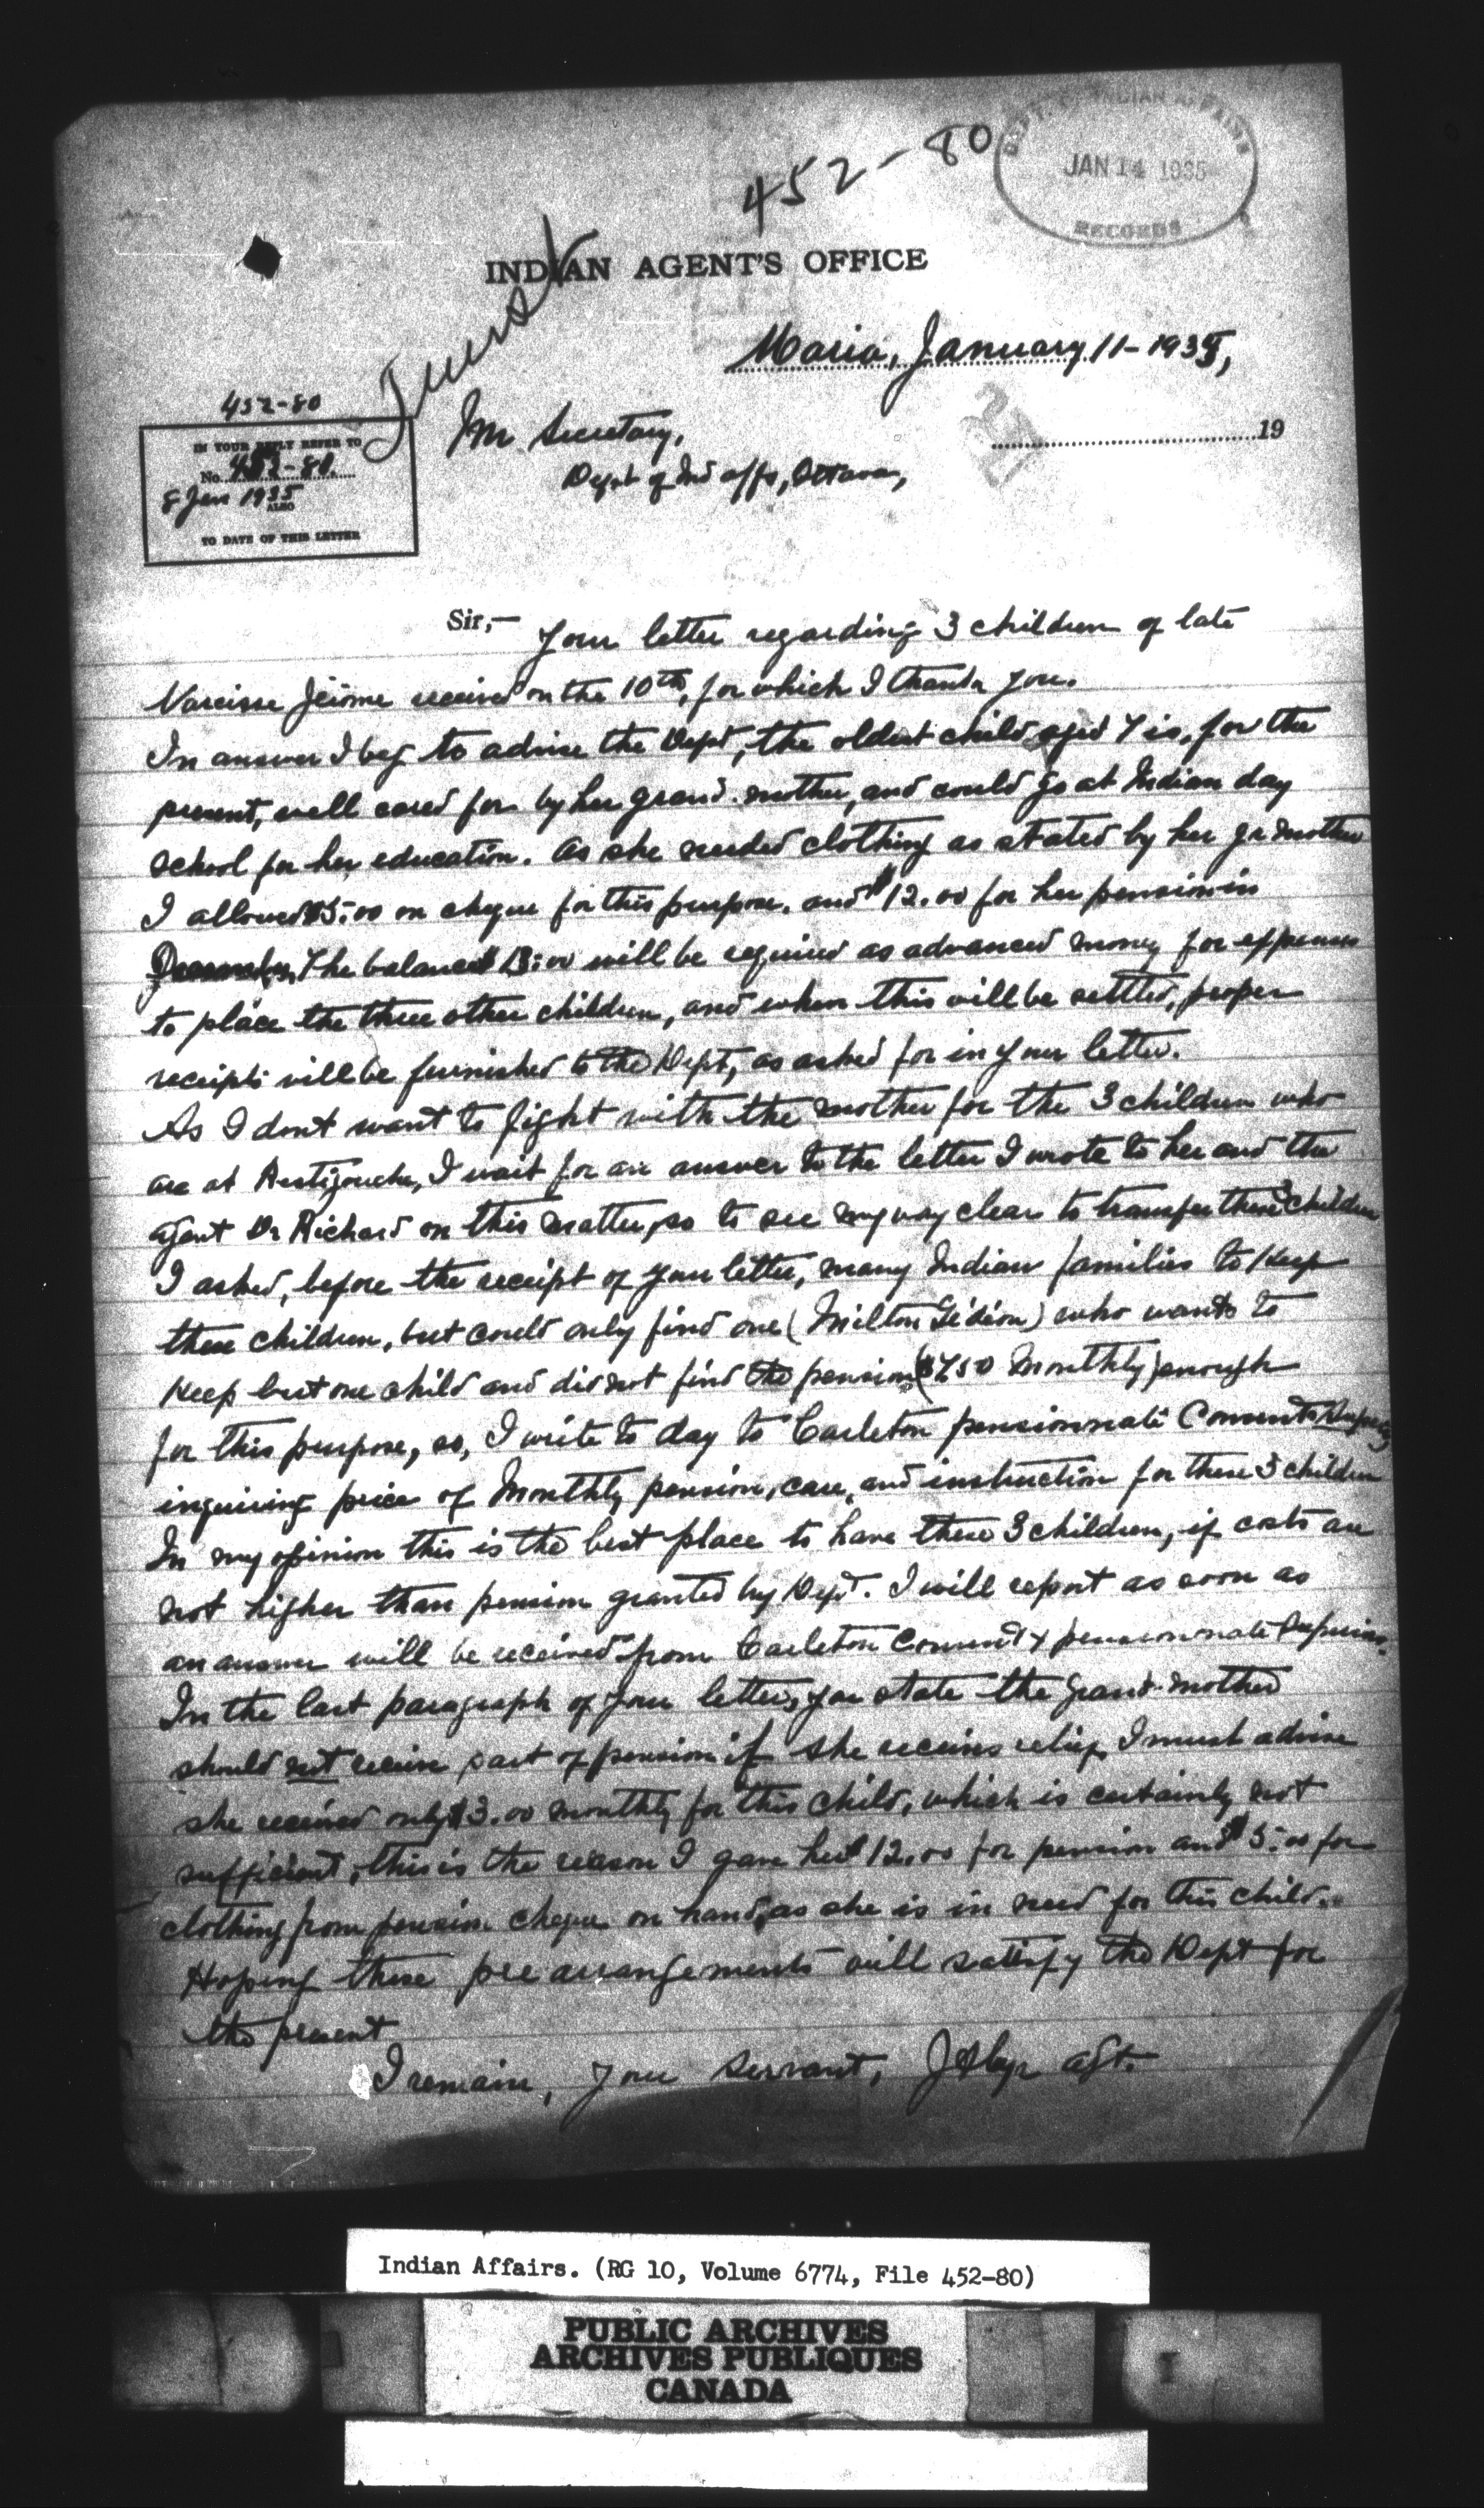 452-80
DEPT. OF INDIAN AFFAIRS
JAN 14 1935
RECORDS
INDIAN AGENT'S OFFICE
Maria, January 11-1935,
452-80
IN YOUR REPLY REFER TO
No. 452-80
8 Jan 1935
ALSO
TO DATE OF THIS LETTER
Secretary,
19
Dept of Ind affs, Ottawa,
Sir,- Your letter regarding 3 children of late
Narcisse Jérome received on the 10th, for which I thank you.
In answer I beg to advise the Dept, the oldest child aged 7 is, for the
present, well cared for by her grand-mother, and could go at Indian day
school for her education. As she needed clothing as stated by her gr mother
I allowed $5.00 on cheque for this purpose, and $12.00 for her pension in
December, The balance $13.00 will be required as advanced money for expenses
to place the three other children, and when this will be settled, proper
receipts will be furnished to the Dept, as asked for in your letter.
As I dont want to fight with the mother for the 3 children who
are at Restigouche, I wait for an answer to the letter I wrote to her and the
agent Dr Richard on this matter, so to see my way clear to transfer these 3 children
I asked, before the receipt of your letter, many Indian families to keep
these children, but could only find one (Milton Gédéon) who wants to
keep but one child and did not find the pension ($7.50 monthly) enough
for this purpose, so, I write to day to Carleton pensionnate Convent
inquiring price of monthly pension, care, and instruction for these 3 children
In my opinion this is the best place to have these 3 children, if costs are
not higher than pension granted by Dept. I will report as soon as
an answer will be received from Carleton Convent & pensionnate Superior.
In the last paragraph of your letter, you state the grand-mother
should not receive part of pension if she receives relief, I must advise
she received only $3.00 monthly for this child, which is certainly not
sufficient, this is the reason I gave her $12.00 for pension and $5.00 for
clothing from pension cheque on hand, as she is in need for this child.
Hoping these prearrangements will satisfy the Dept for
the present
I remain, your servant, agt.
Indian Affairs. (RG 10, Volume 6774, File 452-80)
PUBLIC ARCHIVES
ARCHIVES PUBLIQUES
CANADA